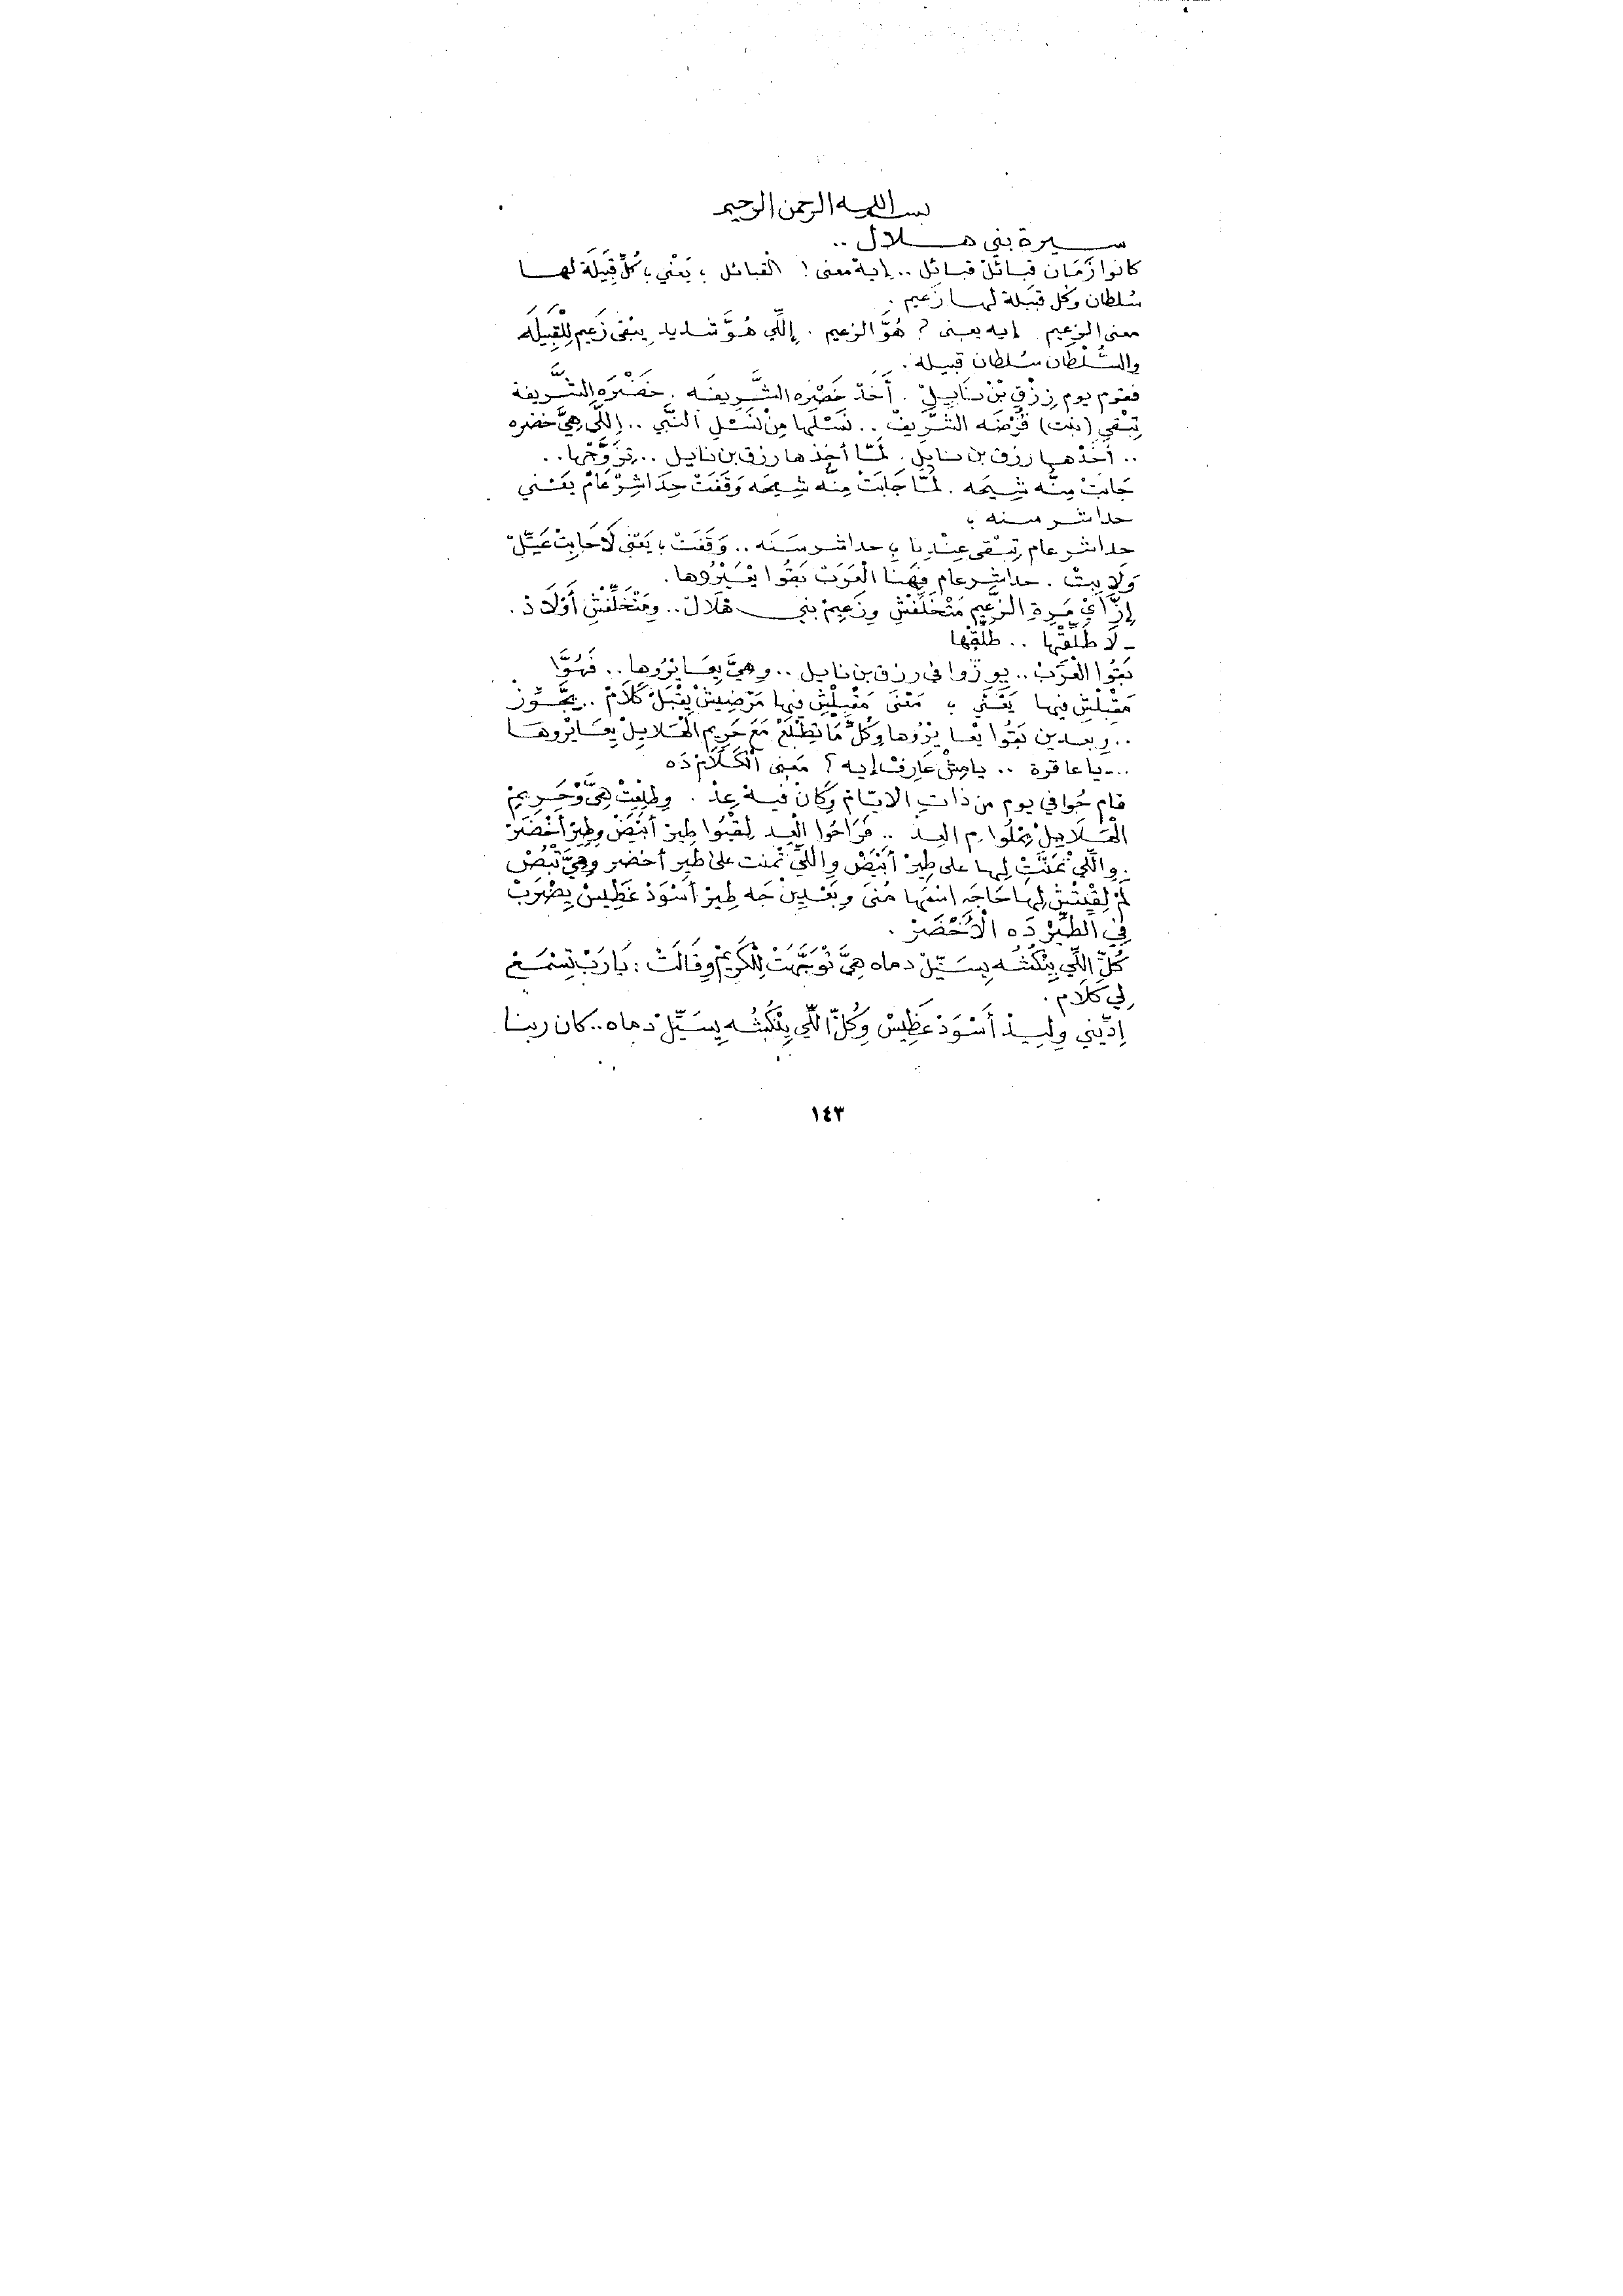 بسم الله الرحمن الرحيم
سيرة بني هلال ..
كانوا زَمَان قبائلْ قبائِل .. إيهْ معنى ! القبائل ؛ يَعْني ؛ كُلِّ قَبِيلَة لها
سُلطان وكل قبيلة لها زعيم .
معنى الزعيم إيه يعنى ؟ هُوَّ الزعيم . إللِّي هُوَّ شديد يبْقى زَعِيم لِلْقِبِيلَه
والسُّلْطان سُلطان قبيله .
فقوم يوم رِزْقِ بْنْ نَايِلْ . أَخَدْ خَضْره الشَّرِيفَه . خَضْرَه الشَّريفة
تِبْقي (بنت) قُرْضَه الشَّرِيفْ .. نَسْلها مِنْ نَسْلِ النَّبي .. إللِّي هِيَّ خضره
.. أخَدْها رزق بن نايل . لمّا أخدها رزق بن نايل .. تزَوَّجْها ..
جَابتْ مِنُّه شِيحَه . لمّا جَابَتْ مِنُّه شِيحَه وَقَفَتْ حِدَاشِرْ عَامْ يَعْني
حداشر سنه ؛
حداشر عام تِبْقى عِنْدِنا ؛ حداشر سَنَه .. وَقَفَتْ ؛ يَعْنى لَا جَابِتْ عَيِّلْ
وَلَا بِتْ . حداشر عام فَهِنَا الْعَرَبْ بَقُوا يْعَيْرُوها .
إِزَّايْ مَرِةِ الزَّعِيم مَتْخَلِّفْش وزَعِيمْ بني هَلَالْ .. ومَتْخَلِّفْش أَوْلَادْ .
ـ لَا طَلَّقْها .. طَلَّقْها
بَقُوا الْعَرَبْ .. يوِزُّوا في رزق بن نايل .. وهيَّ يِعَايْرُوها .. فَهُوَّا
مَقْبِلْش فيها يَعْني ؛ مَعْنَى مَقْبِلْش فيها مَرْضِيشْ يِقْبَلْ كَلَامْ .. يجَّوِّزْ
.. وبعدين بَقُوا يْعايْرُوها وكُلِّ مَا تِطْلَعْ مَعَ حَرِيمِ الْهَلَايِلْ يِعَايْرُوها
.. ـ يا عاقرة .. يا مِشْ عَارِفْ إيه ؟ مَعْنِى الْكَلَامْ دَه
قام جُوا في يوم من ذاتِ الايّامْ وِكَانْ فيهْ عِدْ . وِطِلْعِتْ هِيَّ وْحَرِيمْ
الْهَلَايِلْ يِمْلُوا مِ العِدْ .. فَرَاحُوا الْعِد لِقْيُوا طِيرْ أبْيَضْ وِطِيرْ أخْضَرْ
. وِاللِّي تْمَنِّتْ لِها على طِيرْ أبْيَضْ وِاللِّي تْمنت على طير أخضر وهِيَّ تْبُصّْ
لَمْ لِقِيتْشْ لِهَا حَاجَه اسْمَها مُنَى وِبَعْدِينْ جَه طِيرْ أسْوَدْ غَطِيسْ يِضْرَبْ
فِي الطِّيرْ دَه الْأَخْضَرْ .
كُلِّ اللِّي يِنْكُشُه يِسَيِّلْ دماه هِيَّ تْوَجَّهَتْ لِلْكَرِيمْ وِقَالَتْ : يَارَبْ تِسْمَعْ
لِي كَلَام .
إدِّيني وِلِيدْ أَسْوَدْ غَطِيسْ وِكُلِّ اللِّي يِنْكُشُه يِسَيِّلْ دماه .. كان ربنا
١٤٣